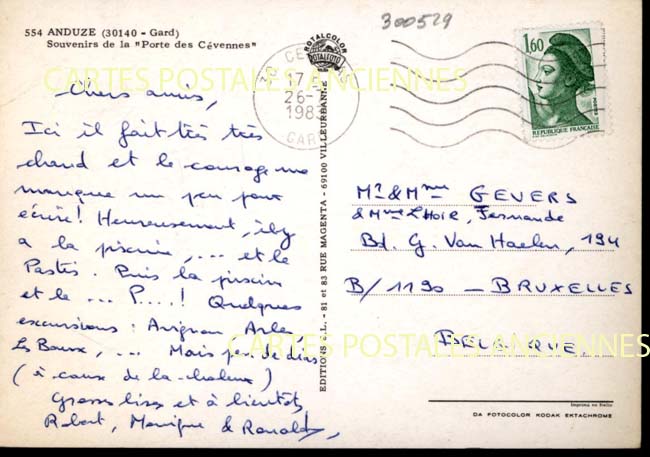 554 ANDUZE (30140 - Gard)
Souvenirs de la "Porte des Cévennes"
300529
ROTALCOLOR
ROTALFOTO
26-7
1983
GARD
1,60
POSTES
REPUBLIQUE FRANÇAISE
CARTES POSTALES ANCIENNES
Chers amis,
Ici il fait très très
chaud et le courage me
manque un peu pour
écrire! Heureusement, il y
a la piscine, ... et le
Pastis. Puis la piscine
et le ... P...! Quelques
excursions: Avignon Arles
Les Baux, ... Mais peu de
(à cause de la chaleur)
Grosses bises et à bientôt,
Robert, Monique & Ronald,
EDITIONS S.L. - 81 et 83 RUE MAGENTA - 69100 VILLEURBANNE
Mr & Mme GEVERS
& Mme LHOIR, Fernande
Bd. G. Van Haelen, 194
B/1190 - BRUXELLES
BELGIQUE.
CARTES POSTALES ANCIENNES
Imprimé en Italie
DA FOTOCOLOR KODAK EKTACHROME